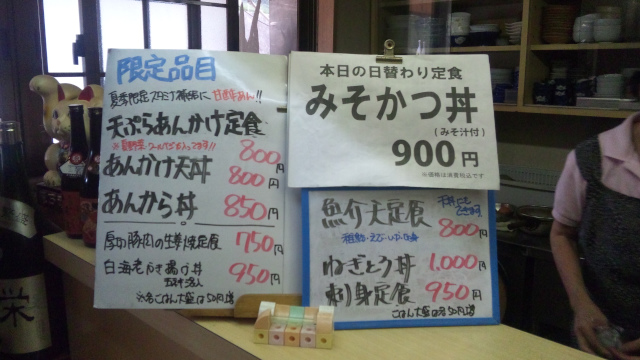 限定品目
天ぷらあんかけ定食
800円
あんかけ天丼
800円
あんから丼
850円
厚切豚肉の生姜焼定食
750円
白海老かき揚げ丼
950円
※各ごはん大盛は50円増
本日の日替わり定食
みそかつ丼
(みそ汁付)
900円
※価格は消費税込です
魚介天定食
800円
ねぎとろ丼
1,000円
刺身定食
950円
ごはん大盛は50円増
栄